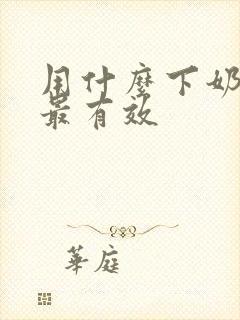 用什麼下奶
最有效
華庭